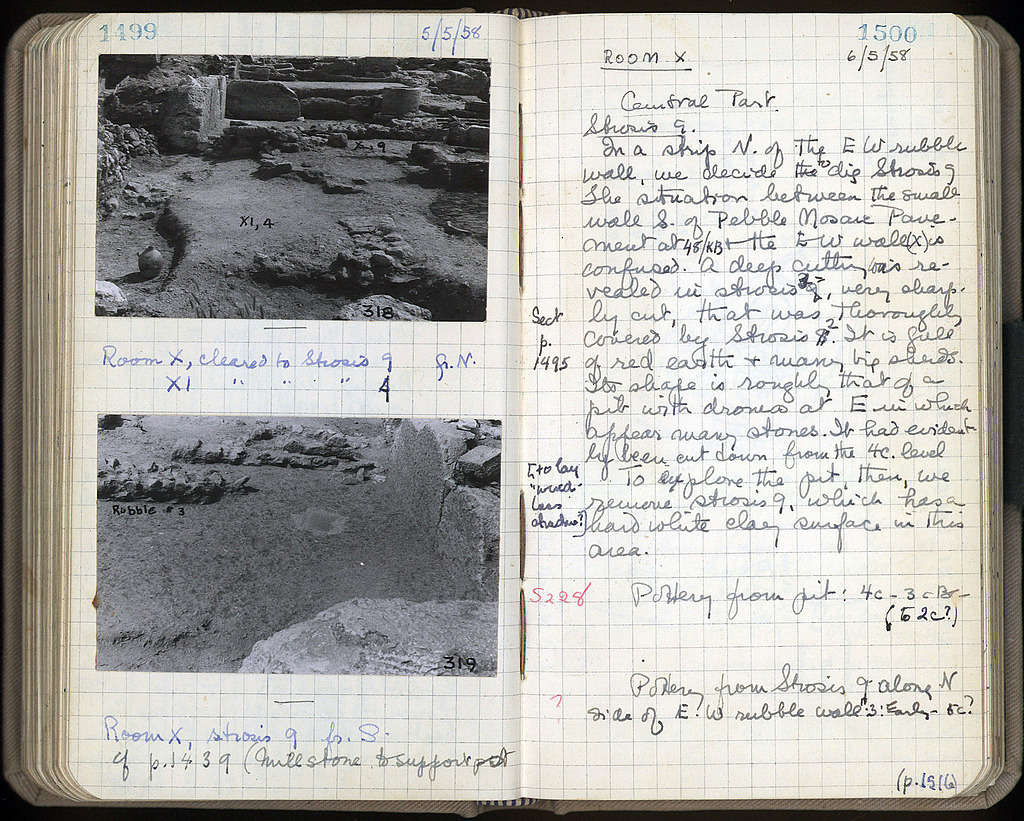 1499
5/5/58
X, 9
XI, 4
318
Room X, cleared to Strosis 9 fr. N.
XI " " " " 4
Rubble # 3
319
Room X, strosis 9 fr. S.
cf p. 1439 (Millstone to support pot
1500
ROOM X
6/5/58
Central Part.
Strosis 9.
In a strip N. of the E W rubble
wall, we decide to dig Strosis 9
The situation between the small
wall S. of Pebble Mosaic Pave-
ment at 48/KB + the E W wall (X) is
confused. A deep cutting was re-
vealed in strosis 3, very sharp-
ly cut, that was thoroughly
covered by Strosis 2. It is full
of red earth + many big sherds.
Its shape is roughly that of a
pit with dromos at E in which
appear many stones. It had evident-
ly been cut down from the 4c. level
To explore the pit, then, we
remove strosis 9, which has a
hard white clay surface in this
area.
Sect
p.
1495
to lay
5228
Pottery from pit: 4c - 3c B-
(to 2c?)
?
Pottery from Strosis 9 along N
side of E. W rubble wall #3: Early - 5c?
(p. 1516)